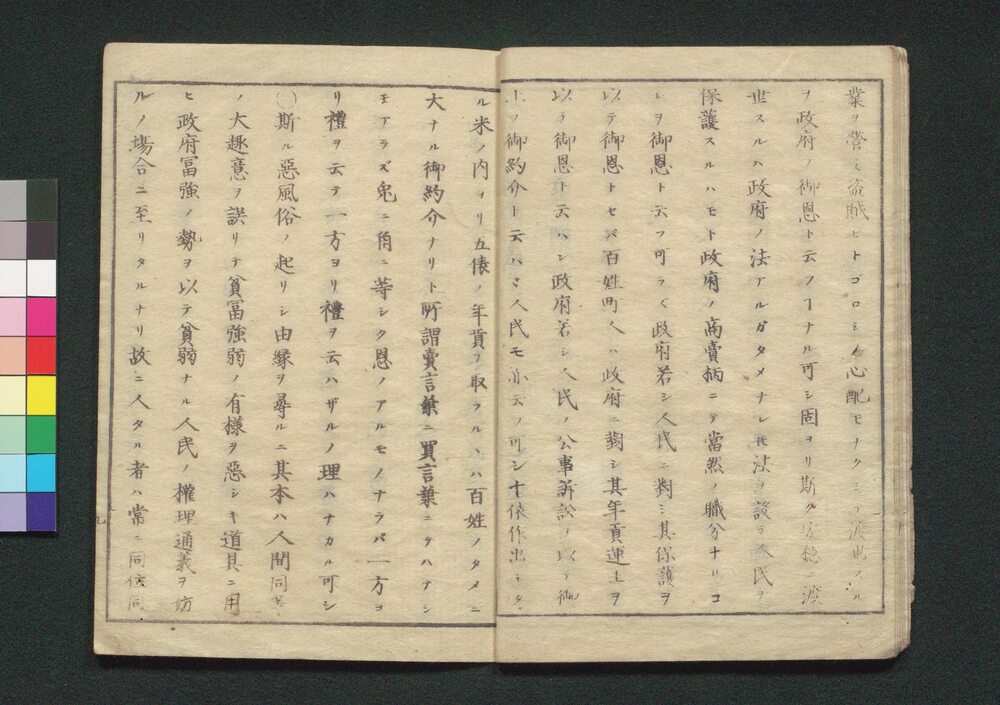 業ヲ營ミ盗賊ヒトゴロシノ心配モナクシテ渡世スル
ヲ政府ノ御恩ト云フヿナル可シ固ヨリ斯ク安穏ニ渡
世スルハ政府ノ法アルガタメナレ𪜈法ヲ設テ人民ヲ
保護スルハモト政府ノ商賣柄ニテ當然ノ職分ナリコ
レヲ御恩ト云フ可ラズ政府若シ人民ニ對シ其保護ヲ
以テ御恩トセバ百姓町人ハ政府ニ對シ其年貢運上ヲ
以テ御恩ト云ハン政府若シ人民ノ公事訴訟ヲ以テ御
上ノ御約介ト云ハヾ人民モ亦云フ可シ十俵作出シタ
ル米ノ内ヨリ五俵ノ年貢ヲ取ラルヽハ百姓ノタメニ
大ナル御約介ナリト所謂賣言葉ニ買言葉ニテハアシ
モアラズ兎ニ角ニ等シク恩ノアルモノナラバ一方ヨ
リ禮ヲ云テ一方ヨリ禮ヲ云ハザルノ理ハナカル可シ
〇斯ル惡風俗ノ起リシ由縁ヲ尋ルニ其本ハ人間同等
ノ大趣意ヲ誤リテ貧冨強弱ノ有様ヲ惡シキ道具ニ用
ヒ政府冨強ノ勢ヲ以テ貧弱ナル人民ノ權理通義ヲ妨
ルノ塲合ニ至リタルナリ故ニ人タル者ハ常ニ同位同
九